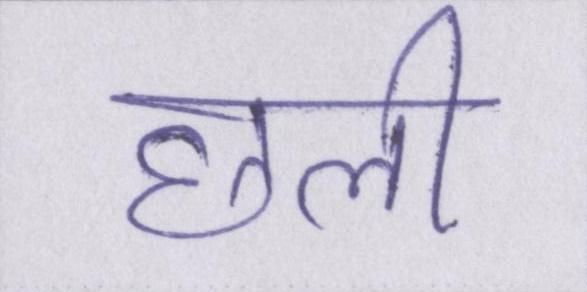 छली